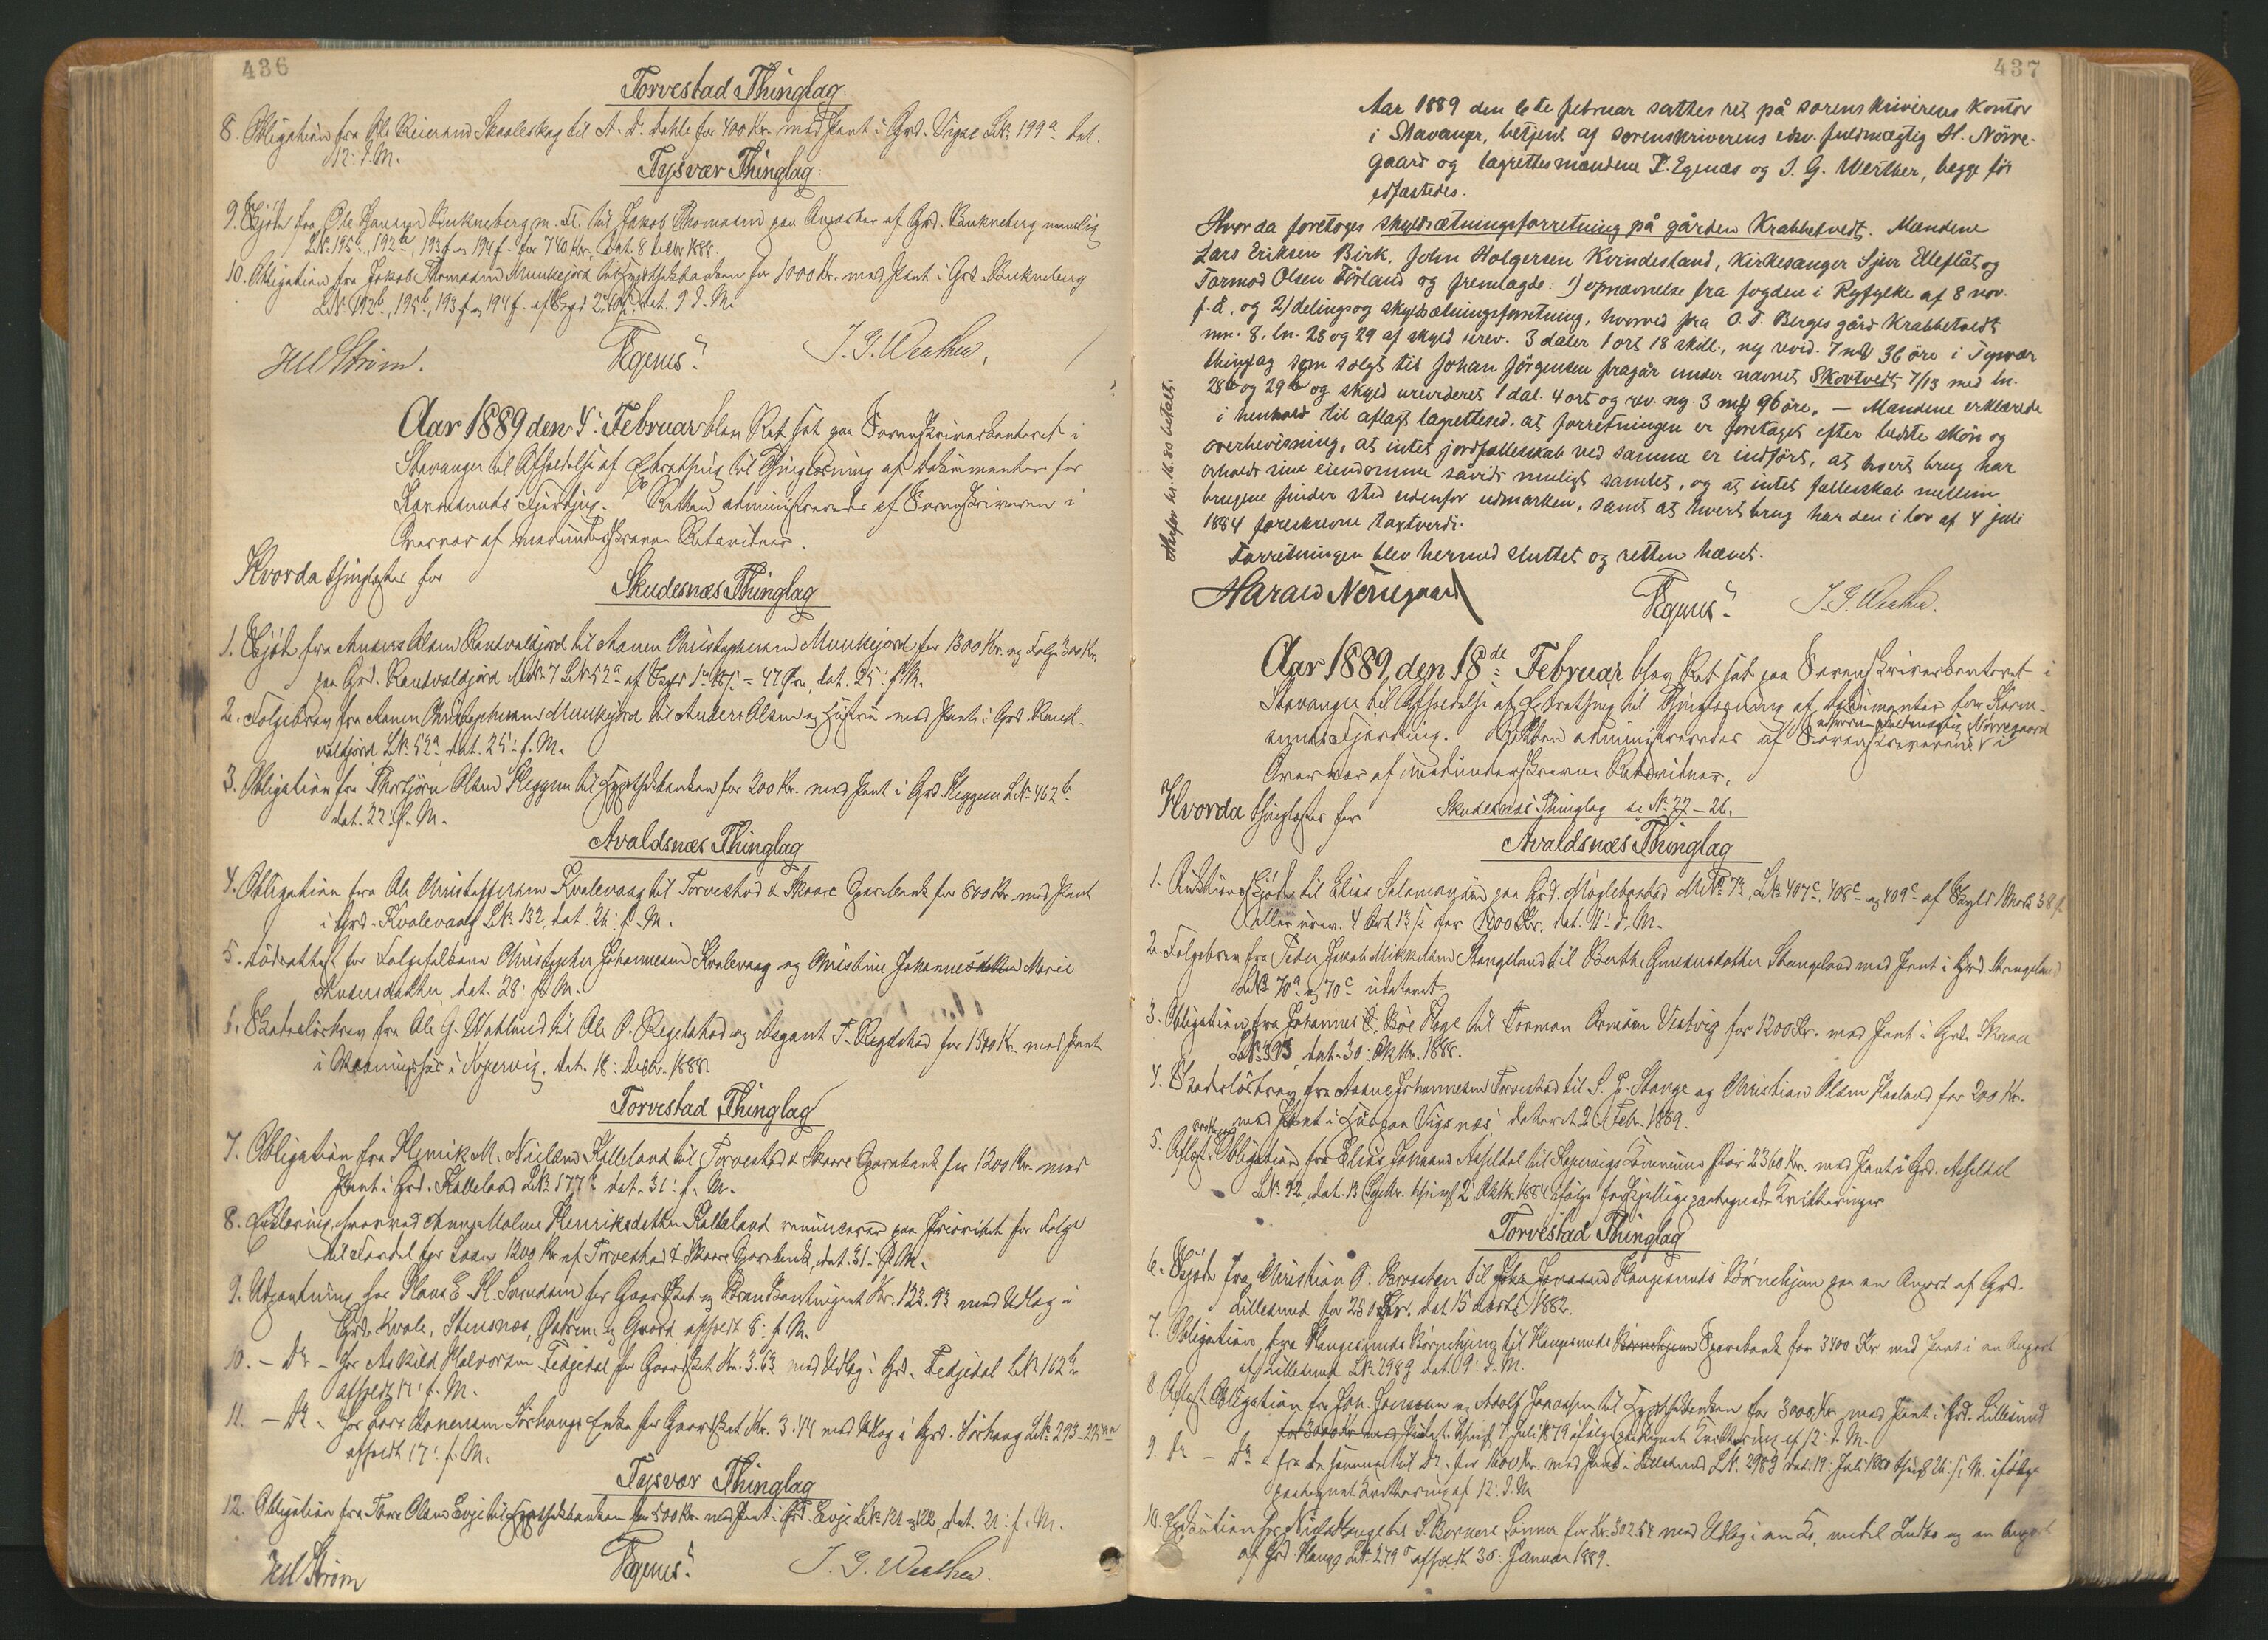 436
Torvestad Thinglag.
8. Obligation fra Ole Reiersen Skaaleskog til A. D. Dahle for 400 Kr. med Pant i Grd. Vigne LNr. 199a dat.
12: d. M.
Tysvær Thinglag.
9. Skjøde fra Ole Hansen Bukneberg m. Fl. til Jakob Thomasen paa Anparter af Grd. Bukneberg nemlig
LNr. 195b, 192b, 193f og 194f. for 740 Kr., dat. 8 Decbr 1888.
10. Obligation fra Jakob Thomasen Munkejord til Hypothekbanken for 1000 Kr. med Pant i Grd. Bukneberg
LNr. 192b, 195b, 193f og 194f. af Skyld dat. 9 d. M.
Hll Strøm. TEgenes. J. G. Werther.
Aar 1889 den 4: Februar blev Ret sat paa Sorenskriverkontoret i
Stavanger til Afholdelse af Extrathing til Thinglæsning af Dokumenter for
Karmsunds Fjerding. Retten administreredes af Sorenskriveren i
Overvær af medunderskrevne Retsvidner.
Hvorda thinglæstes for
Skudesnæs Thinglag
1. Skjøde fra Anders Olsen Sandvaldjord til Aanen Christophersen Munkejord for 1300 Kr. og Folge 300 Kr
paa Grd. Sandvaldjord MNr. 7 LNr. 52a af Skyld = 47 Øre, dat. 25: f. M.
2. Folgebrev fra Aanen Christophersen Munkejord til Anders Olsen og Hustru med Pant i Grd. Sand-
valdjord, LNr. 52a, dat. 25: f. M.
3. Obligation fra Thorbjørn Olsen Heggem til Hypothekbanken for 200 Kr. med Pant i Grd Heggem LNr. 462b
dat. 22: f. M.
Avaldsnæs Thinglag
4. Obligation fra Ole Christoffersen Kvalevaag til Torvestad & Skaare Sparebank for 800 Kr. med Pant
i Grd. Kvalevaag LNr. 132, dat. 26: f. M.
5. Dødsattest for Folgefolkene Christopher Johannesen Kvalevaag og Christine Johannesdatter Marie
Andersdatter, dat. 28: f. M.
6. Skadesløsbrev fra Ole G. Wahlund til Ole P. Rygelstad og Asgaut T. Rygelstad for 1500 Kr. med Pant
i Vaaningshus i Kopervig. dat. 18: Decbr. 1888.
Torvestad Thinglag
7. Obligation fra Henrik M. Nielsen Kolleland til Torvestad & Skaare Sparebank for 1200 Kr. med
Pant i Grd. Kolleland LNr. 177a dat. 31: f. M.
8. Erklæring, hvorved Anne Malene Henriksdatter Kolleland renuncerer paa Prioritet for Folge
til Fordel for Laan 1200 Kr. af Torvestad & Skaare Sparebank, dat. 31: f. M.
9. Udpantning hos Hans E. H. Svendsen for Gaardskat og Brandkontingent Kr. 122.93 med Udlæg i
Grd. Kvale, Stensnæs, Østrem og Gaard, afholdt 8: f. M.
10. – Do – hos Askild Halvorsen Fedjedal for Gaardskat Kr. 3.63 med Udlæg i Grd. Fedjedal LNr. 162b
afholdt 17: f. M.
11. – Do – hos Lars Aanensen Sørhaugs Enke for Gaardskat Kr. 3.44 med Udlæg i Grd. Sørhaug LNr. 293
afholdt 17: f. M.
Tysvær Thinglag
12. Obligation fra Thore Olsen Evje til Hypothekbanken for 500 Kr. med Pant i Grd. Evje LNr. 121 og 122, dat. 21: f. M.
Hll Strøm TEgenes. J. G. Werther.
437
Aar 1889 den 6te februar sattes ret på sorenskriverens kontor
i Stavanger, betjent af sorenskriverens edsv. fuldmægtig H. Nörre-
gaard og lagrettesmændene T. Egenæs og J. G. Werther, begge för
edfæstedes.
Hvorda foretoges skyldsætningsforretning på gården Krabbetvedt. Mændene
Lars Eriksen Birk, John Holgersen Kvindesland, kirkesanger Sjur Elleflåt og
Tormod Olsen Förland og fremlagde: 1) opnævnelse fra fogden i Ryfylke af 8 nov.
f. å. og 2) delings og skyldsætningsforretning, hvorved fra O. T. Berges gård Krabbetvedt
mn. 8, ln. 28 og 29 af skyld urev. 3 daler 1 ort 18 skill., ny revid. 7 mk 36 öre i Tysvær
thinglag som solgt til Johan Jörgensen fragår under navnet Skovtvedt 7/13 med ln.
28b og 29b og skyld urevideret 1 dal. 4 ort og rev. ny. 3 mk 96 öre. — Mændene erklærede
i henhold til aflagt lagrettesed. at forretningen er foretaget efter bedste skön og
overbevisning, at intet jordfællesskab ved samme er indfört, at hvert brug har
erholdt sine eiendomme såvidt muligt samlet, og at intet fællesskab mellem
brugene finder sted udenfor udmarken, samt at hvert brug har den i lov af 4 juli
1884 foreskrevne taxtverdi.
Forretningen blev hermed sluttet og retten hævet.
Harald Nörregaard TEgenes. J. G. Werther.
Aar 1889, den 18de Februar blev Ret sat paa Sorenskriverkontoret i
Stavanger til Afholdelse af Extrathing til Thinglæsning af Dokumenter for Karm-
sunds Fjerding. Retten administreredes af Sorenskriverens edsvorne Fuldmægtig Nørregaard i
Overvær af medunderskrevne Retsvidner.
Hvorda thinglæstes for Skudesnæs Thinglag se No. 22 – 26.
Avaldsnæs Thinglag
1. Auktionsskjøde til Elias Salamonsen paa Grd. Møglebostad MNo. 72, LNr. 407c, 408c og 409c af Skyld 1 Mark 38
eller urev. 4 Ort 13 ß for 1400 Kr. dat. 11: d. M.
2. Folgebrev fra Peder Jakob Mikkelsen Stangeland til Berthe Gundersdatter Stangeland med Pant i Grd. Stangeland
LNr. 70a og 70c udateret
3. Obligation fra Johannes Bøe Hoge til Tormon Ormsen Vestvig for 1200 Kr. med Pant i Grd. Skeie
LNr. 393, dat. 30: Oktbr. 1888.
4. Skadesløsbrev fra Aanne Johannesen Torvestad til S. J. Stange og Christian Olsen Haaland for 200 Kr.
med Pant i Hus paa Vigsnæs, dateret 26 Febr. 1889.
5. Aflyst Obligation fra Elias Johnsen Aasheldal til Kopervigs Kommune stor 2360 Kr. med Pant i Grd. Asheldal
LNr. 92, dat. 13 Septbr. thingl. 2 Oktbr. 1884 ifølge forskjellige paategnede Kvitteringer
Torvestad Thinglag
6. Skjøde fra Christian O. Sørvesten til Haugesunds Børnehjem paa en Anpart af Grd.
Lillesund for 280 Kr. dat 15 Marts 1882.
7. Obligation fra Haugesunds Børnehjem til Haugesunds Børnehjem Sparebank for 3400 Kr. med Pant i en Anpart
af Lillesund LNr. 298g dat. 9: d. M.
8. Aflyst Obligation fra Joh. Jonassen og Adolf Jonassen til Hypothekbanken for 3000 Kr. med Pant i Grd. Lillesund
for 3000 Kr med Pant thingl. 7 Juli 1879 ifølge paategnet Kvittering af 12: d. M.
9. Do – Do – fra de samme til Do. for 1600 Kr. med Pant i Lillesund LNr. 298g dat. 19: Juli 1880 thingl. 26: s. M. ifølge
paategnet Kvittering af 12: d. M.
10. Exekution hos Nils Hauge til S. Borners Sønner for Kr. 302.54 med Udlæg i en Ko, endel Indbo og en Anpart
af Grd. Hauge LNr. 279 afholdt 30: Januar 1889.